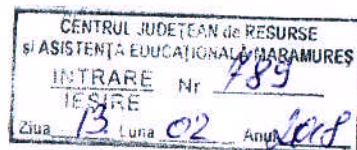 CENTRUL JUDEȚEAN de RESURSE
și ASISTENȚA EDUCAȚIONALĂ MARAMUREȘ
INTRARE Nr 789
IEȘIRE
Ziua 13 Luna 02 Anul 2018